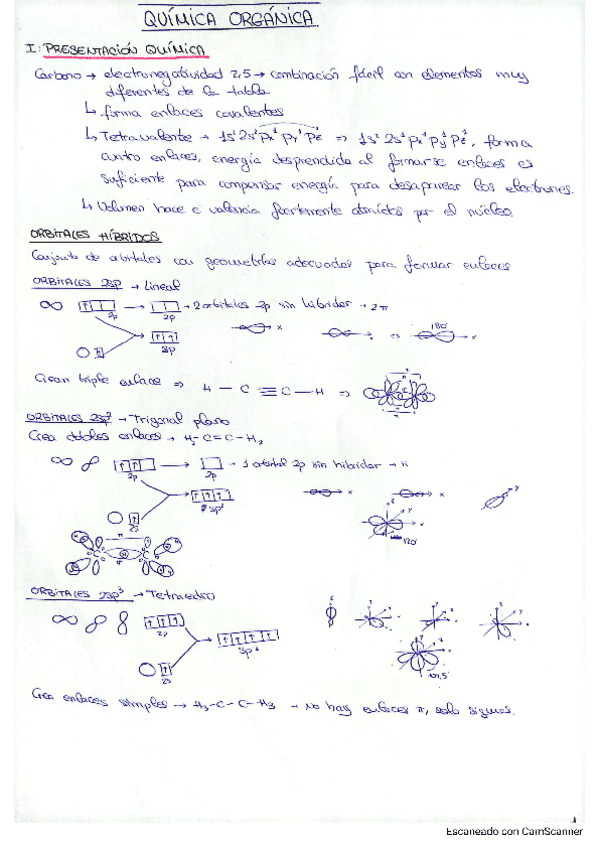 QUÍMICA ORGÁNICA
I: PRESENTACIÓN QUÍMICA
Carbono → electronegatividad 2,5 → combinación fácil con elementos muy
diferentes de la tabla
↳ forma enlaces covalentes
↳ Tetravalente → 1s² 2s² px¹ py¹ pz ⇒ 1s² 2s¹ px¹ py¹ pz¹, forma
cuatro enlaces, energía desprendida al formarse enlaces es
suficiente para compensar energía para desaparear los electrones.
↳ Volumen hace e⁻ valencia fuertemente atraídos por el núcleo.
ORBITALES HÍBRIDOS
Conjunto de orbitales con geometrías adecuadas para formar enlaces
ORBITALES 2sp → Lineal
→ 2 orbitales 2p sin hibridar → 2π
2p 2p
x x 180° x
sp
Crean triple enlace ⇒ H – C ≡ C – H ⇒
ORBITALES 2sp² → Trigonal plano
Crea dobles enlaces → H₂-C=C-H₂
→ 1 orbital 2p sin hibridar → π
2p 2p
2sp²
2s
120
ORBITALES 2sp³ → Tetraedro
2p
sp³
2s
109,5
Crea enlaces simples → H₃-C-C-H₃ → No hay enlaces π, solo sigmas.
1
Escaneado con CamScanner